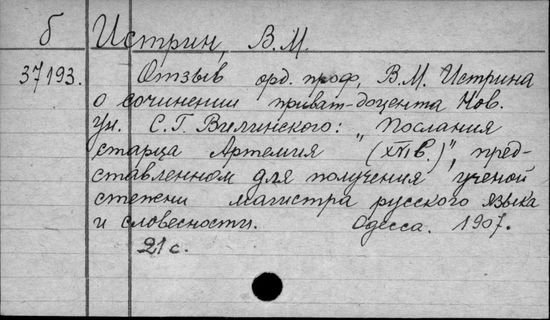 б Истрин, В.М.
37193. Отзыв орд. проф. В.М. Истрина
о сочинении приват-доцента Нов.
Ун. С.Г. Вилинского: „Послания
старца Артемия (XVI в.)", пред-
ставленном для получения ученой
степени магистра русского языка
и словесности. Одесса. 1907.
21 с.